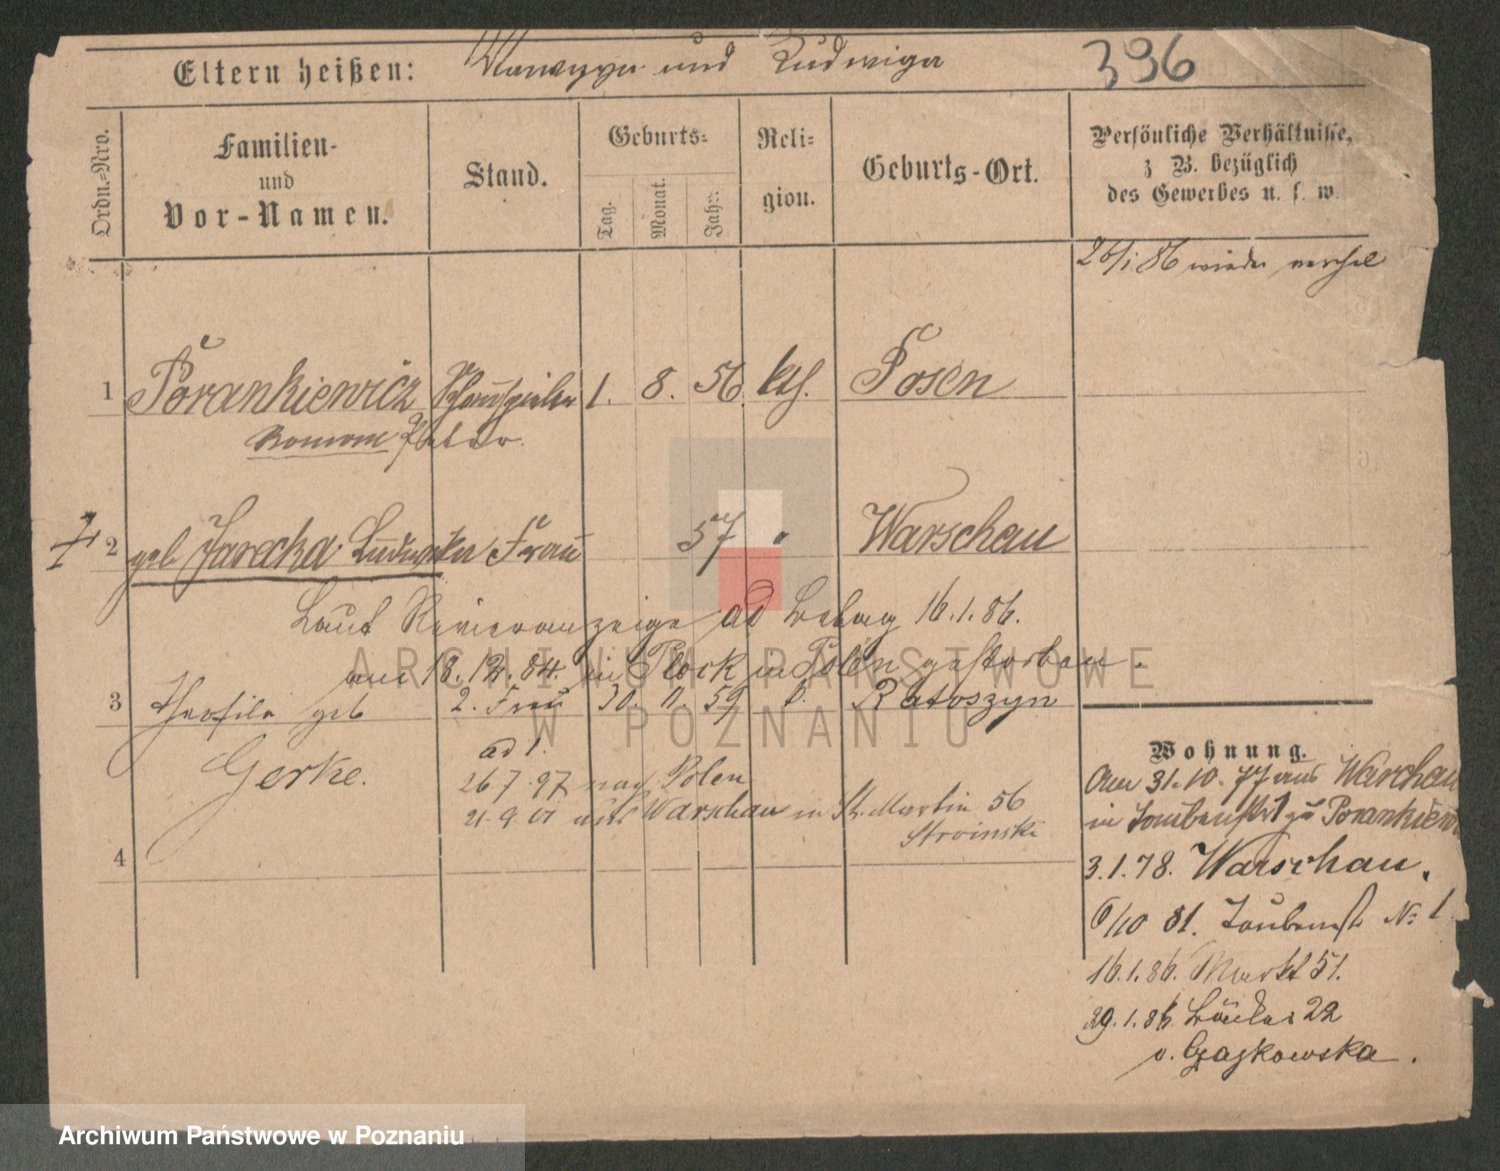 396
Eltern heißen: und Ludwiga
Ordn.=Nro.
Familien-
und
Vor-Namen.
Stand.
Geburts=
Tag.
Monat.
Jahr.
Reli=
gion.
Geburts-Ort.
Persönliche Verhältnisse,
z B. bezüglich
des Gewerbes u. s. w.
26/1 86 wieder
1 Porankiewicz Schauspieler 1. 8. 56. kth. Posen
Roman Peter.
2 geb Jarecka Ludwika Frau 57 " Warschau
Laut Revieranzeige ad Belag 16.1.86.
am 18.12.84. in Plock in Polen gestorben.
3 Theofila geb 2. Frau 30. 11. 59 k. Ratoszyn
Gerke.
ad 1.
26 7. 97 nach Polen
21. 9. 01 aus Warschau in St. Martin 56
Stroinski
4
Wohnung.
Am 31.10.77 aus Warschau
in Taubenstr 1 zu Porankiew
3.1.78. Warschau.
6/10 81. Taubenstr № 1
16.1.86. Markt 51.
29.1.86. Bäcker 22
v. Czajkowska.
ARCHIWUM PAŃSTWOWE
W POZNANIU
Archiwum Państwowe w Poznaniu